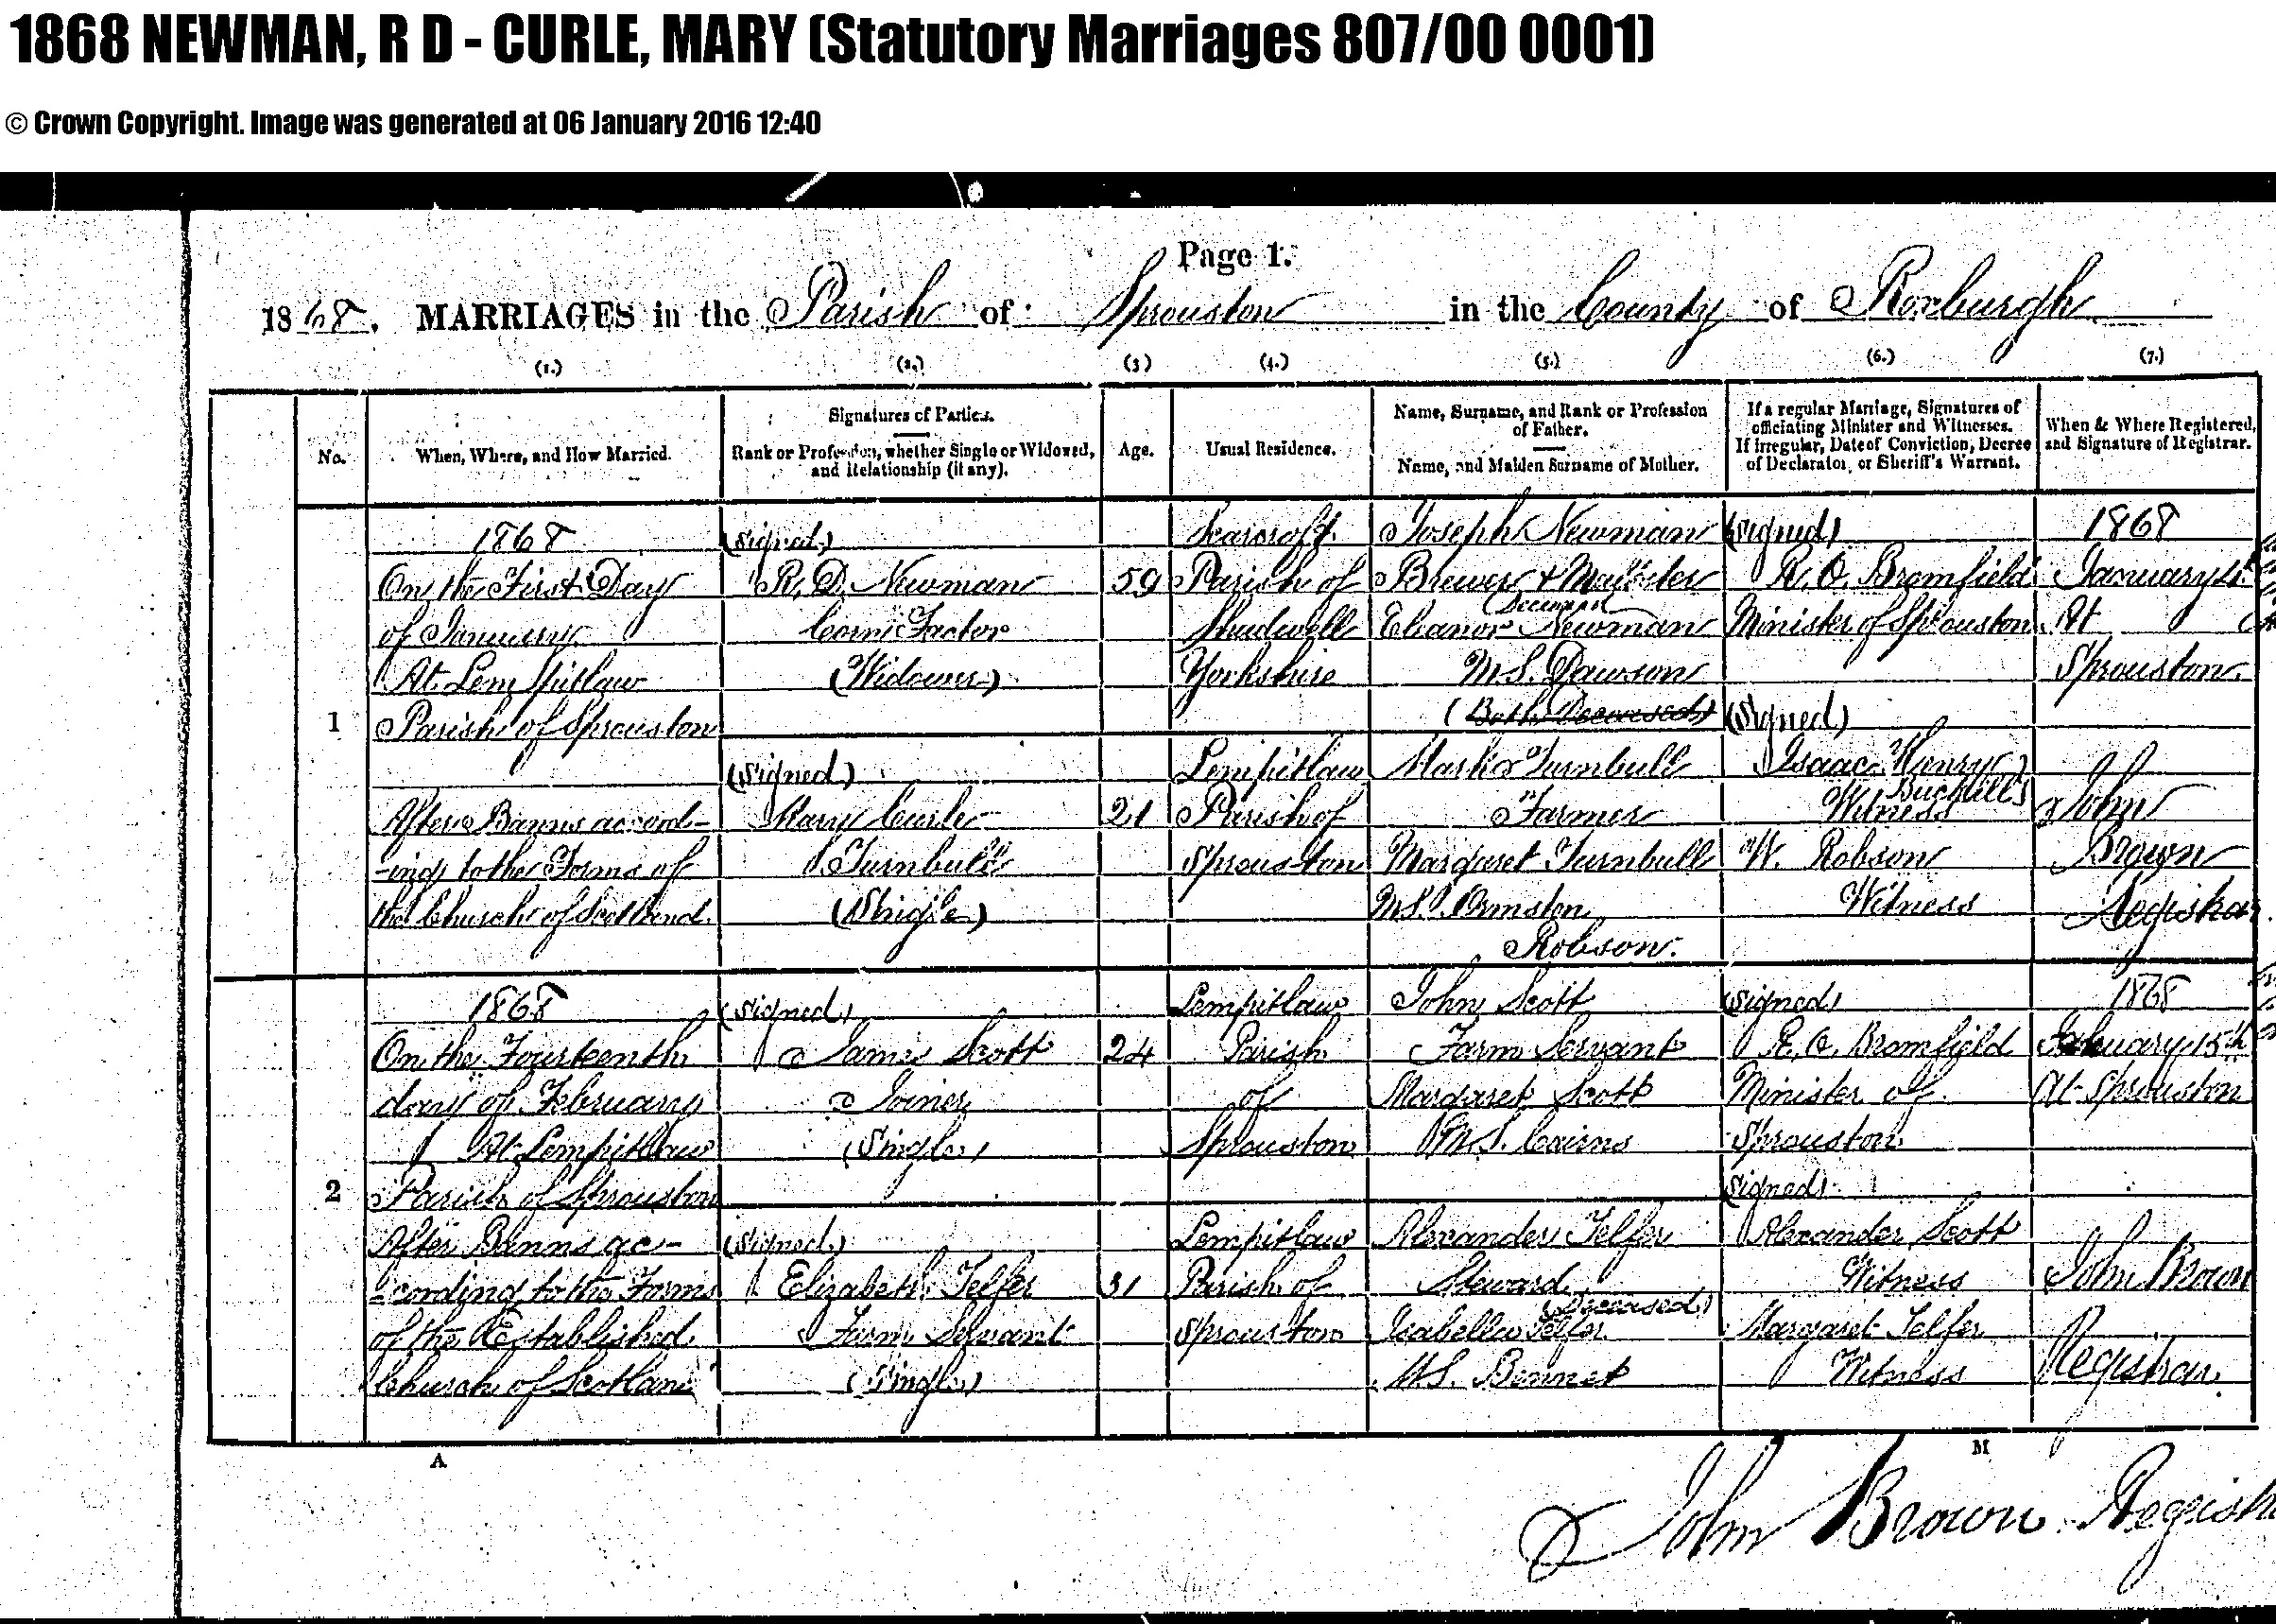 1868 NEWMAN, R D - CURLE, MARY (Statutory Marriages 807/00 0001)
© Crown Copyright. Image was generated at 06 January 2016 12:40
Page 1.
1868. MARRIAGES in the Parish of Sprouston in the County of Roxburgh
(1.) (2.) (3) (4.) (5.) (6.) (7.)
No.
When, Where, and How Married.
Signatures of Parties.
Rank or Profession, whether Single or Widowed,
and Relationship (if any).
Age.
Usual Residence.
Name, Surname, and Rank or Profession
of Father.
Name, and Maiden Surname of Mother.
If a regular Marriage, Signatures of
officiating Minister and Witnesses.
If irregular, Date of Conviction, Decree
of Declarator, or Sheriff's Warrant.
When & Where Registered,
and Signature of Registrar.
1
1868
On the First Day
of January
At Lempitlaw
Parish of Sprouston
After Banns accord-
-ing to the Forms of
the Church of Scotland.
(Signed)
R. D. Newman
Corn Factor
(Widower)
(Signed)
Mary Curle
Turnbull
(Single)
59
21
Scarcroft
Parish of
Shadwell
Yorkshire
Lempitlaw
Parish of
Sprouston
Joseph Newman
Brewer & Maltster
Deceased
Eleanor Newman
M.S. Dawson
(Both Deceased)
Mark Turnbull
Farmer
Margaret Turnbull
M.S. Ormston
Robson.
(Signed)
R. O. Bromfield
Minister of Sprouston
(Signed)
Isaac Henry
Witness
W. Robson
Witness
1868
January
At
Sprouston
John
Brown
Registrar.
2
1868
On the Fourteenth
day of February
At Lempitlaw
Parish of Sprouston
After Banns ac-
-cording to the Forms
of the Established
Church of Scotland
(Signed)
James Scott
Joiner
(Single)
(Signed)
Elizabeth Telfer
Farm Servant
(Single)
24
31
Lempitlaw
Parish
of
Sprouston
Lempitlaw
Parish of
Sprouston
John Scott
Farm Servant
Margaret Scott
M.S. Cairns
Alexander Telfer
Steward
(Deceased)
Isabella Telfer
M.S. Bennet
(Signed)
R. O. Bromfield
Minister of
Sprouston
(Signed)
Alexander Scott
Witness
Margaret Telfer
Witness
1868
February 15th
At Sprouston
John Brown
Registrar.
A M
John Brown